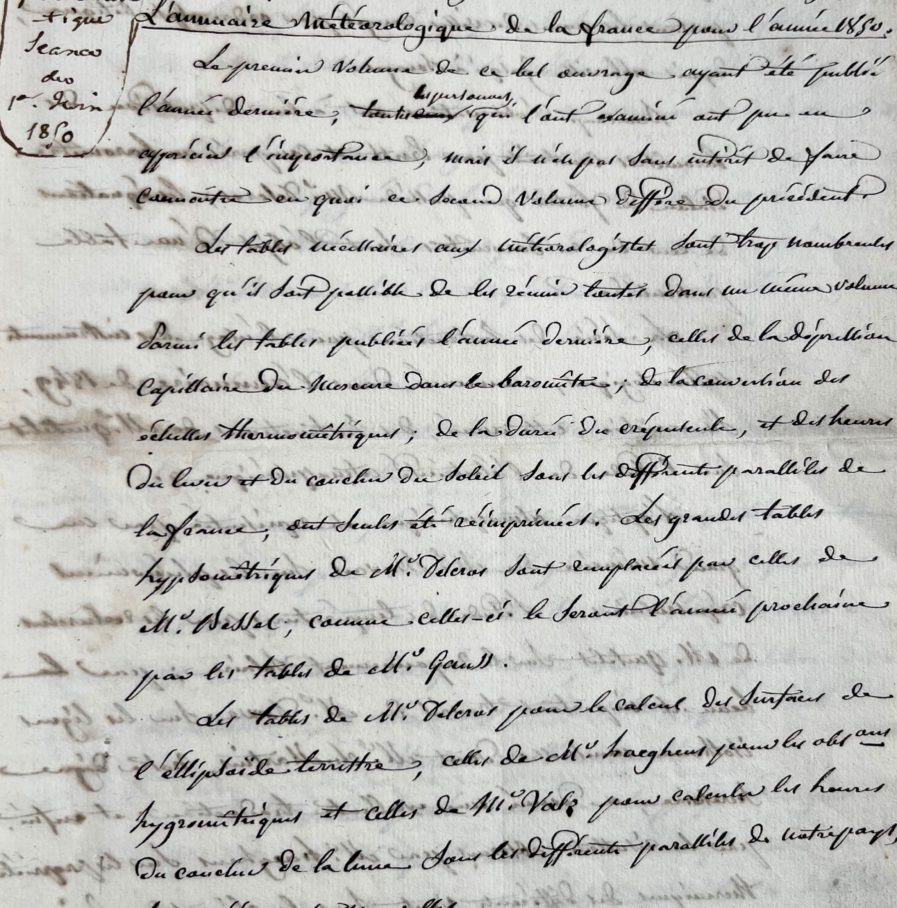 tique
Séance
du
1er. Juin
1850
L'annuaire Météorologique de la france pour l'année 1850.
Le premier volume de ce bel ouvrage ayant été publié
les personnes
l'année dernière, qui l'ont examiné ont pu en
apprécier l'importance, mais il n'est pas sans intérêt de faire
connoître en quoi ce second volume diffère du précédent.
Les tables nécéssaires aux météorologistes sont trop nombreuses
pour qu'il soit possible de les réunir toutes dans un même volume
Parmi les tables publiées l'année dernière, celles de la dépression
Capillaire du Mercure dans le baromètre; de la convertion des
échelles thermomètriques; de la durée du crépuscule, et des heures
du lever et du coucher du Soleil sous les différents parallèles de
la france, ont seules été réimprimées. Les grandes tables
hypsomètriques de Mr. Delcros sont remplacées par celles de
Mr. Bessel, comme celles-ci le seront l'année prochaine
par les tables de Mr. Gauss.
Les tables de Mr. Delcros pour le calcul des surfaces de
l'éllipsoïde terrestre, celles de Mr. haeghens pour les obsons
hygromètriques et celles de Mr. Valz pour calculer les heures
du coucher de la lune sous les différents parallèles de notre pays,